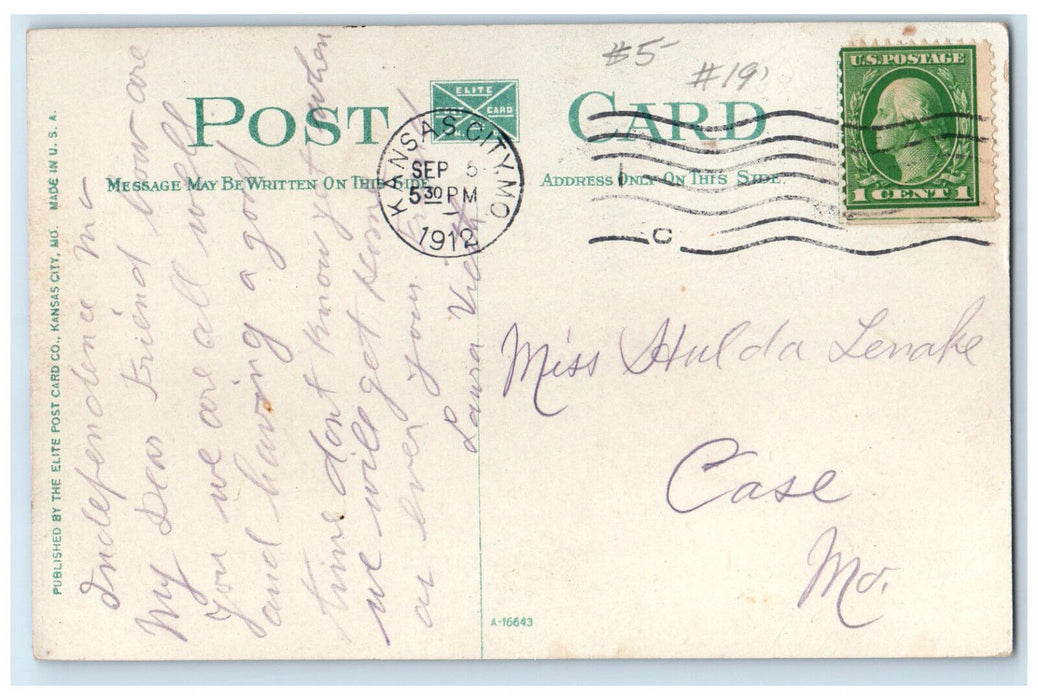 #5
#19
POST CARD
ELITE
CARD
U.S. POSTAGE
1 CENT 1
KANSAS CITY, MO.
SEP 5
5 30 PM
1912
C
MESSAGE MAY BE WRITTEN ON THIS SIDE
ADDRESS ONLY ON THIS SIDE.
PUBLISHED BY THE ELITE POST CARD CO., KANSAS CITY, MO. MADE IN U. S. A.
Independence Mo
My Dear Friend how are
you we are all well
and having a good
time dont know yet when
we will get home
as ever your friend
Laura
Miss Hulda Lenake
Case
Mo.
A-16643